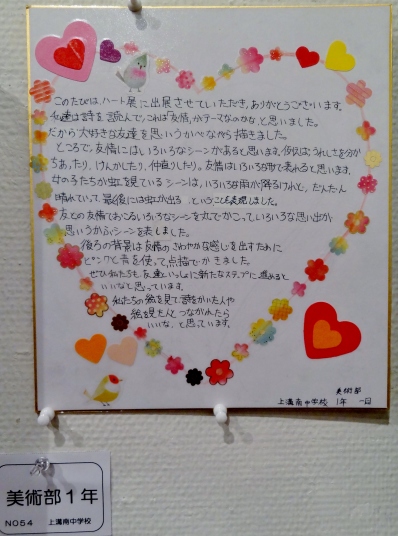 このたびは、ハート展に出展させていただき、ありがとうございます。
私達は詩を読んで、これは「友情」がテーマなのかな、と思いました。
だから大好きな友達を思いうかべながら描きました。
ところで、友情にはいろいろなシーンがあると思います。例えば、うれしさを分か
ちあったり、けんかしたり、仲直りしたり。友情はいろいろな形で表れると思います。
女の子たちが虹を見ているシーンは、いろいろな雨が降るけれど、だんだん
晴れていって、最後には虹が出る ということを表現しました。
友との友情でおこるいろいろなシーンを丸でかこっていろいろな思い出が
思いうかぶシーンを表しました。
後ろの背景は友情のさわやかな感じを出すために
ピンクと青を使って点描でかきました。
ぜひ私たちも友達といっしょに新たなステップに進めると
いいなと思っています。
私たちの絵を見て、詩をかいた人や
絵を見た人とつながれたら
いいな、と思っています。
美術部
上溝南中学校 1年 一同
美術部1年
NO54 上溝南中学校